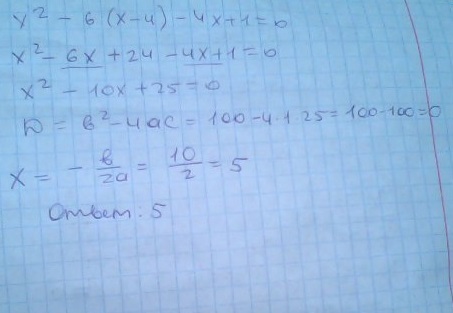 x² - 6(x-4) - 4x+1=0
x² - 6x + 24 - 4x+1=0
x² - 10x + 25 = 0
D = b² - 4ac = 100 - 4·1·25 = 100-100=0
x = - b/2a = 10/2 = 5
Ответ: 5